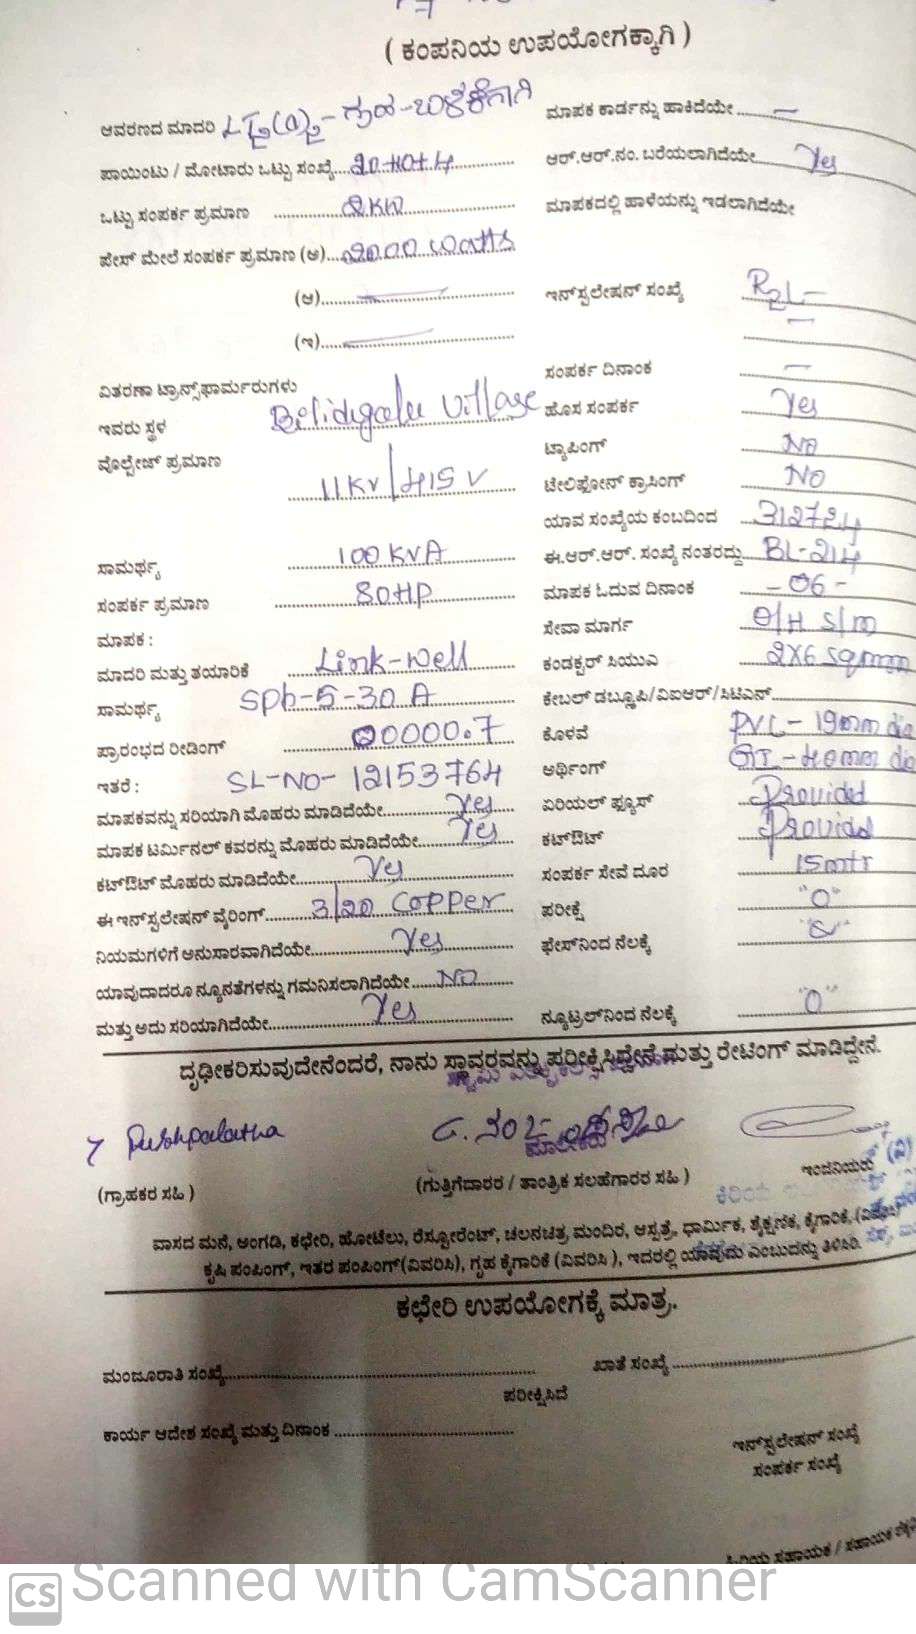 ( ಕಂಪನಿಯ ಉಪಯೋಗಕ್ಕಾಗಿ )
ಆವರಣದ ಮಾದರಿ ಗೃಹ-ಬಳಕೆಗಾಗಿ
ಮಾಪಕ ಕಾರ್ಡನ್ನು ಹಾಕಿದೆಯೇ ........ —
ಪಾಯಿಂಟು / ಮೋಟಾರು ಒಟ್ಟು ಸಂಖ್ಯೆ....
ಆರ್.ಆರ್.ನಂ. ಬರೆಯಲಾಗಿದೆಯೇ...... Yes
ಒಟ್ಟು ಸಂಪರ್ಕ ಪ್ರಮಾಣ ........ 2KW
ಮಾಪಕದಲ್ಲಿ ಹಾಳೆಯನ್ನು ಇಡಲಾಗಿದೆಯೇ
ಪೇಸ್ ಮೇಲೆ ಸಂಪರ್ಕ ಪ್ರಮಾಣ (ಅ)... 2000 Watts
(ಆ)........ —
ಇನ್‌ಸ್ಟಲೇಷನ್ ಸಂಖ್ಯೆ
(ಇ)........ —
ಸಂಪರ್ಕ ದಿನಾಂಕ —
ವಿತರಣಾ ಟ್ರಾನ್ಸ್‌ಫಾರ್ಮರುಗಳು
ಇವರು ಸ್ಥಳ Bilidugalu Village
ಹೊಸ ಸಂಪರ್ಕ Yes
ವೊಲ್ಟೇಜ್ ಪ್ರಮಾಣ 11KV/415 V
ಟ್ಯಾಪಿಂಗ್ NO
ಟೇಲಿಫೋನ್ ಕ್ರಾಸಿಂಗ್ NO
ಯಾವ ಸಂಖ್ಯೆಯ ಕಂಬದಿಂದ 312724
ಸಾಮರ್ಥ್ಯ 100 KVA
ಈ.ಆರ್.ಆರ್. ಸಂಖ್ಯೆ ನಂತರದ್ದು BL-214
ಸಂಪರ್ಕ ಪ್ರಮಾಣ 80HP
ಮಾಪಕ ಓದುವ ದಿನಾಂಕ -06-
ಮಾಪಕ :
ಸೇವಾ ಮಾರ್ಗ O/H S/m
ಮಾದರಿ ಮತ್ತು ತಯಾರಿಕೆ Link-Well
ಕಂಡಕ್ಟರ್ ಸಿಯುಎ 2X6 sqmm
ಸಾಮರ್ಥ್ಯ Sph-5-30 A
ಕೇಬಲ್ ಡಬ್ಲೂಪಿ/ವಿಐಆರ್/ಸಿಟಿಎನ್........
ಪ್ರಾರಂಭದ ರೀಡಿಂಗ್ 00000.7
ಕೊಳವೆ PVC-19mm dia
ಇತರೆ : SL-NO- 12153764
ಅರ್ಥಿಂಗ್ GI-40mm dia
ಮಾಪಕವನ್ನು ಸರಿಯಾಗಿ ಮೊಹರು ಮಾಡಿದೆಯೇ........ Yes
ಏರಿಯಲ್ ಫ್ಯೂಸ್ Provided
ಮಾಪಕ ಟರ್ಮಿನಲ್ ಕವರನ್ನು ಮೊಹರು ಮಾಡಿದೆಯೇ...... Yes
ಕಟ್‌ಔಟ್ Provided
ಕಟ್‌ಔಟ್ ಮೊಹರು ಮಾಡಿದೆಯೇ........ Yes
ಸಂಪರ್ಕ ಸೇವೆ ದೂರ 15mtr
ಈ ಇನ್‌ಸ್ಟಲೇಷನ್ ವೈರಿಂಗ್........ 3/20 Copper
ಪರೀಕ್ಷೆ "0"
ನಿಯಮಗಳಿಗೆ ಅನುಸಾರವಾಗಿದೆಯೇ........ Yes
ಫೇಸ್‌ನಿಂದ ನೆಲಕ್ಕೆ
ಯಾವುದಾದರೂ ನ್ಯೂನತೆಗಳನ್ನು ಗಮನಿಸಲಾಗಿದೆಯೇ...... NO
ಮತ್ತು ಅದು ಸರಿಯಾಗಿದೆಯೇ........ Yes
ನ್ಯೂಟ್ರಲ್‌ನಿಂದ ನೆಲಕ್ಕೆ "0"
ದೃಢೀಕರಿಸುವುದೇನೆಂದರೆ, ನಾನು ಸ್ಥಾವರವನ್ನು ಪರೀಕ್ಷಿಸಿದ್ದೇನೆ ಮತ್ತು ರೇಟಿಂಗ್ ಮಾಡಿದ್ದೇನೆ.
Pushpalatha
ಮಾಲೀಕರು
(ಗ್ರಾಹಕರ ಸಹಿ )
(ಗುತ್ತಿಗೆದಾರರ / ತಾಂತ್ರಿಕ ಸಲಹೆಗಾರರ ಸಹಿ )
ಇಂಜಿನಿಯರು
ವಾಸದ ಮನೆ, ಅಂಗಡಿ, ಕಛೇರಿ, ಹೋಟೆಲು, ರೆಸ್ಟೋರೆಂಟ್, ಚಲನಚಿತ್ರ ಮಂದಿರ, ಆಸ್ಪತ್ರೆ, ಧಾರ್ಮಿಕ, ಶೈಕ್ಷಣಿಕ, ಕೈಗಾರಿಕೆ,
ಕೃಷಿ ಪಂಪಿಂಗ್, ಇತರ ಪಂಪಿಂಗ್(ವಿವರಿಸಿ), ಗೃಹ ಕೈಗಾರಿಕೆ (ವಿವರಿಸಿ ), ಇದರಲ್ಲಿ ಯಾವುದು ಎಂಬುದನ್ನು ತಿಳಿಸಿರಿ.
ಕಛೇರಿ ಉಪಯೋಗಕ್ಕೆ ಮಾತ್ರ.
ಮಂಜೂರಾತಿ ಸಂಖ್ಯೆ........
ಖಾತೆ ಸಂಖ್ಯೆ ........
ಪರೀಕ್ಷಿಸಿದೆ
ಕಾರ್ಯ ಆದೇಶ ಸಂಖ್ಯೆ ಮತ್ತು ದಿನಾಂಕ ........
ಇನ್‌ಸ್ಟಲೇಷನ್ ಸಂಖ್ಯೆ
ಸಂಪರ್ಕ ಸಂಖ್ಯೆ
ಹಿರಿಯ ಸಹಾಯಕ / ಸಹಾಯಕ
CS Scanned with CamScanner